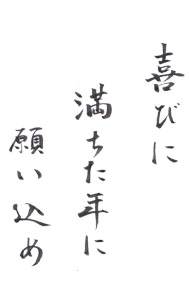 喜びに
満ちた年に
願い込め